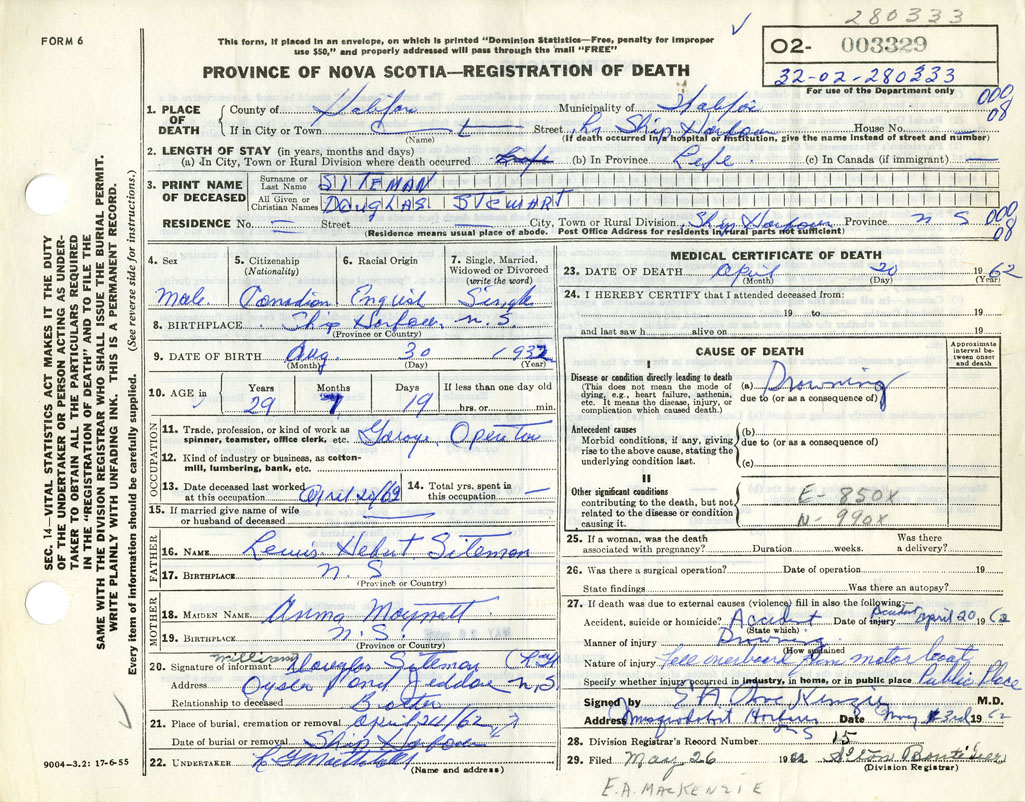 280333
FORM 6
This form, if placed in an envelope, on which is printed "Dominion Statistics—Free, penalty for improper
use $50," and properly addressed will pass through the mail "FREE"
O2- 003329
32-02-280333
For use of the Department only
PROVINCE OF NOVA SCOTIA—REGISTRATION OF DEATH
1. PLACE OF DEATH County of Halifax Municipality of Halifax 000 08
If in City or Town (Name) Street Ship Harbour House No. —
(If death occurred in a hospital or institution, give the name instead of street and number)
2. LENGTH OF STAY (in years, months and days)
(a) In City, Town or Rural Division where death occurred Life (b) In Province Life. (c) In Canada (if immigrant) —
3. PRINT NAME OF DECEASED Surname or Last Name SITEMAN
All Given or Christian Names DOUGLAS STEWART
RESIDENCE No. — Street — City, Town or Rural Division Ship Harbour Province N S 000 08
(Residence means usual place of abode. Post Office Address for residents in rural parts not sufficient)
SEC. 14—VITAL STATISTICS ACT MAKES IT THE DUTY
OF THE UNDERTAKER OR PERSON ACTING AS UNDER-
TAKER TO OBTAIN ALL THE PARTICULARS REQUIRED
IN THE "REGISTRATION OF DEATH" AND TO FILE THE
SAME WITH THE DIVISION REGISTRAR WHO SHALL ISSUE THE BURIAL PERMIT.
WRITE PLAINLY WITH UNFADING INK. THIS IS A PERMANENT RECORD.
Every item of information should be carefully supplied. (See reverse side for instructions.)
4. Sex Male
5. Citizenship (Nationality) Canadian
6. Racial Origin English
7. Single, Married, Widowed or Divorced (write the word) Single
8. BIRTHPLACE Ship Harbour N.S.
(Province or Country)
9. DATE OF BIRTH Aug. 30 1932
(Month) (Day) (Year)
10. AGE in Years 29 Months 7 Days 19 If less than one day old hrs. or min.
OCCUPATION
11. Trade, profession, or kind of work as
spinner, teamster, office clerk, etc. Operator
12. Kind of industry or business, as cotton-
mill, lumbering, bank, etc.
13. Date deceased last worked
at this occupation April 20/62
14. Total yrs. spent in
this occupation —
15. If married give name of wife
or husband of deceased —
FATHER
16. NAME Lewis Hebert Siteman
17. BIRTHPLACE N. S
(Province or Country)
MOTHER
18. MAIDEN NAME Anna
19. BIRTHPLACE N.S.
(Province or Country)
20. Signature of informant William Douglas Siteman
Address Oyster Pond Jeddore N.S.
Relationship to deceased Brother
21. Place of burial, cremation or removal April 24/62
Date of burial or removal Ship Harbour
22. UNDERTAKER
(Name and address)
9004—3.2: 17-6-55
MEDICAL CERTIFICATE OF DEATH
23. DATE OF DEATH April 20 1962
(Month) (Day) (Year)
24. I HEREBY CERTIFY that I attended deceased from:
19 to 19
and last saw h alive on 19
CAUSE OF DEATH
Approximate interval be-tween onset and death
I
Disease or condition directly leading to death
(This does not mean the mode of
dying, e.g., heart failure, asthenia,
etc. It means the disease, injury, or
complication which caused death.)
(a) Drowning
due to (or as a consequence of)
Antecedent causes
Morbid conditions, if any, giving
rise to the above cause, stating the
underlying condition last.
(b)
due to (or as a consequence of)
(c)
II
Other significant conditions
contributing to the death, but not
related to the disease or condition
causing it.
E-850X
N-990X
25. If a woman, was the death
associated with pregnancy? Duration weeks. Was there a delivery?
26. Was there a surgical operation? Date of operation 19
State findings Was there an autopsy?
27. If death was due to external causes (violence) fill in also the following:
Accident, suicide or homicide? Accident Date of injury Accident April 20 1962
(State which)
Manner of injury Drowning
(How sustained
Nature of injury Fell overboard from motor boat
Specify whether injury occurred in industry, in home, or in public place Public Place
Signed by E A MacKenzie M.D.
Address Musquodoboit Harbour NS Date May 3rd 1962
28. Division Registrar's Record Number 15
29. Filed May 26 1962
(Division Registrar)
E.A. MACKENZIE